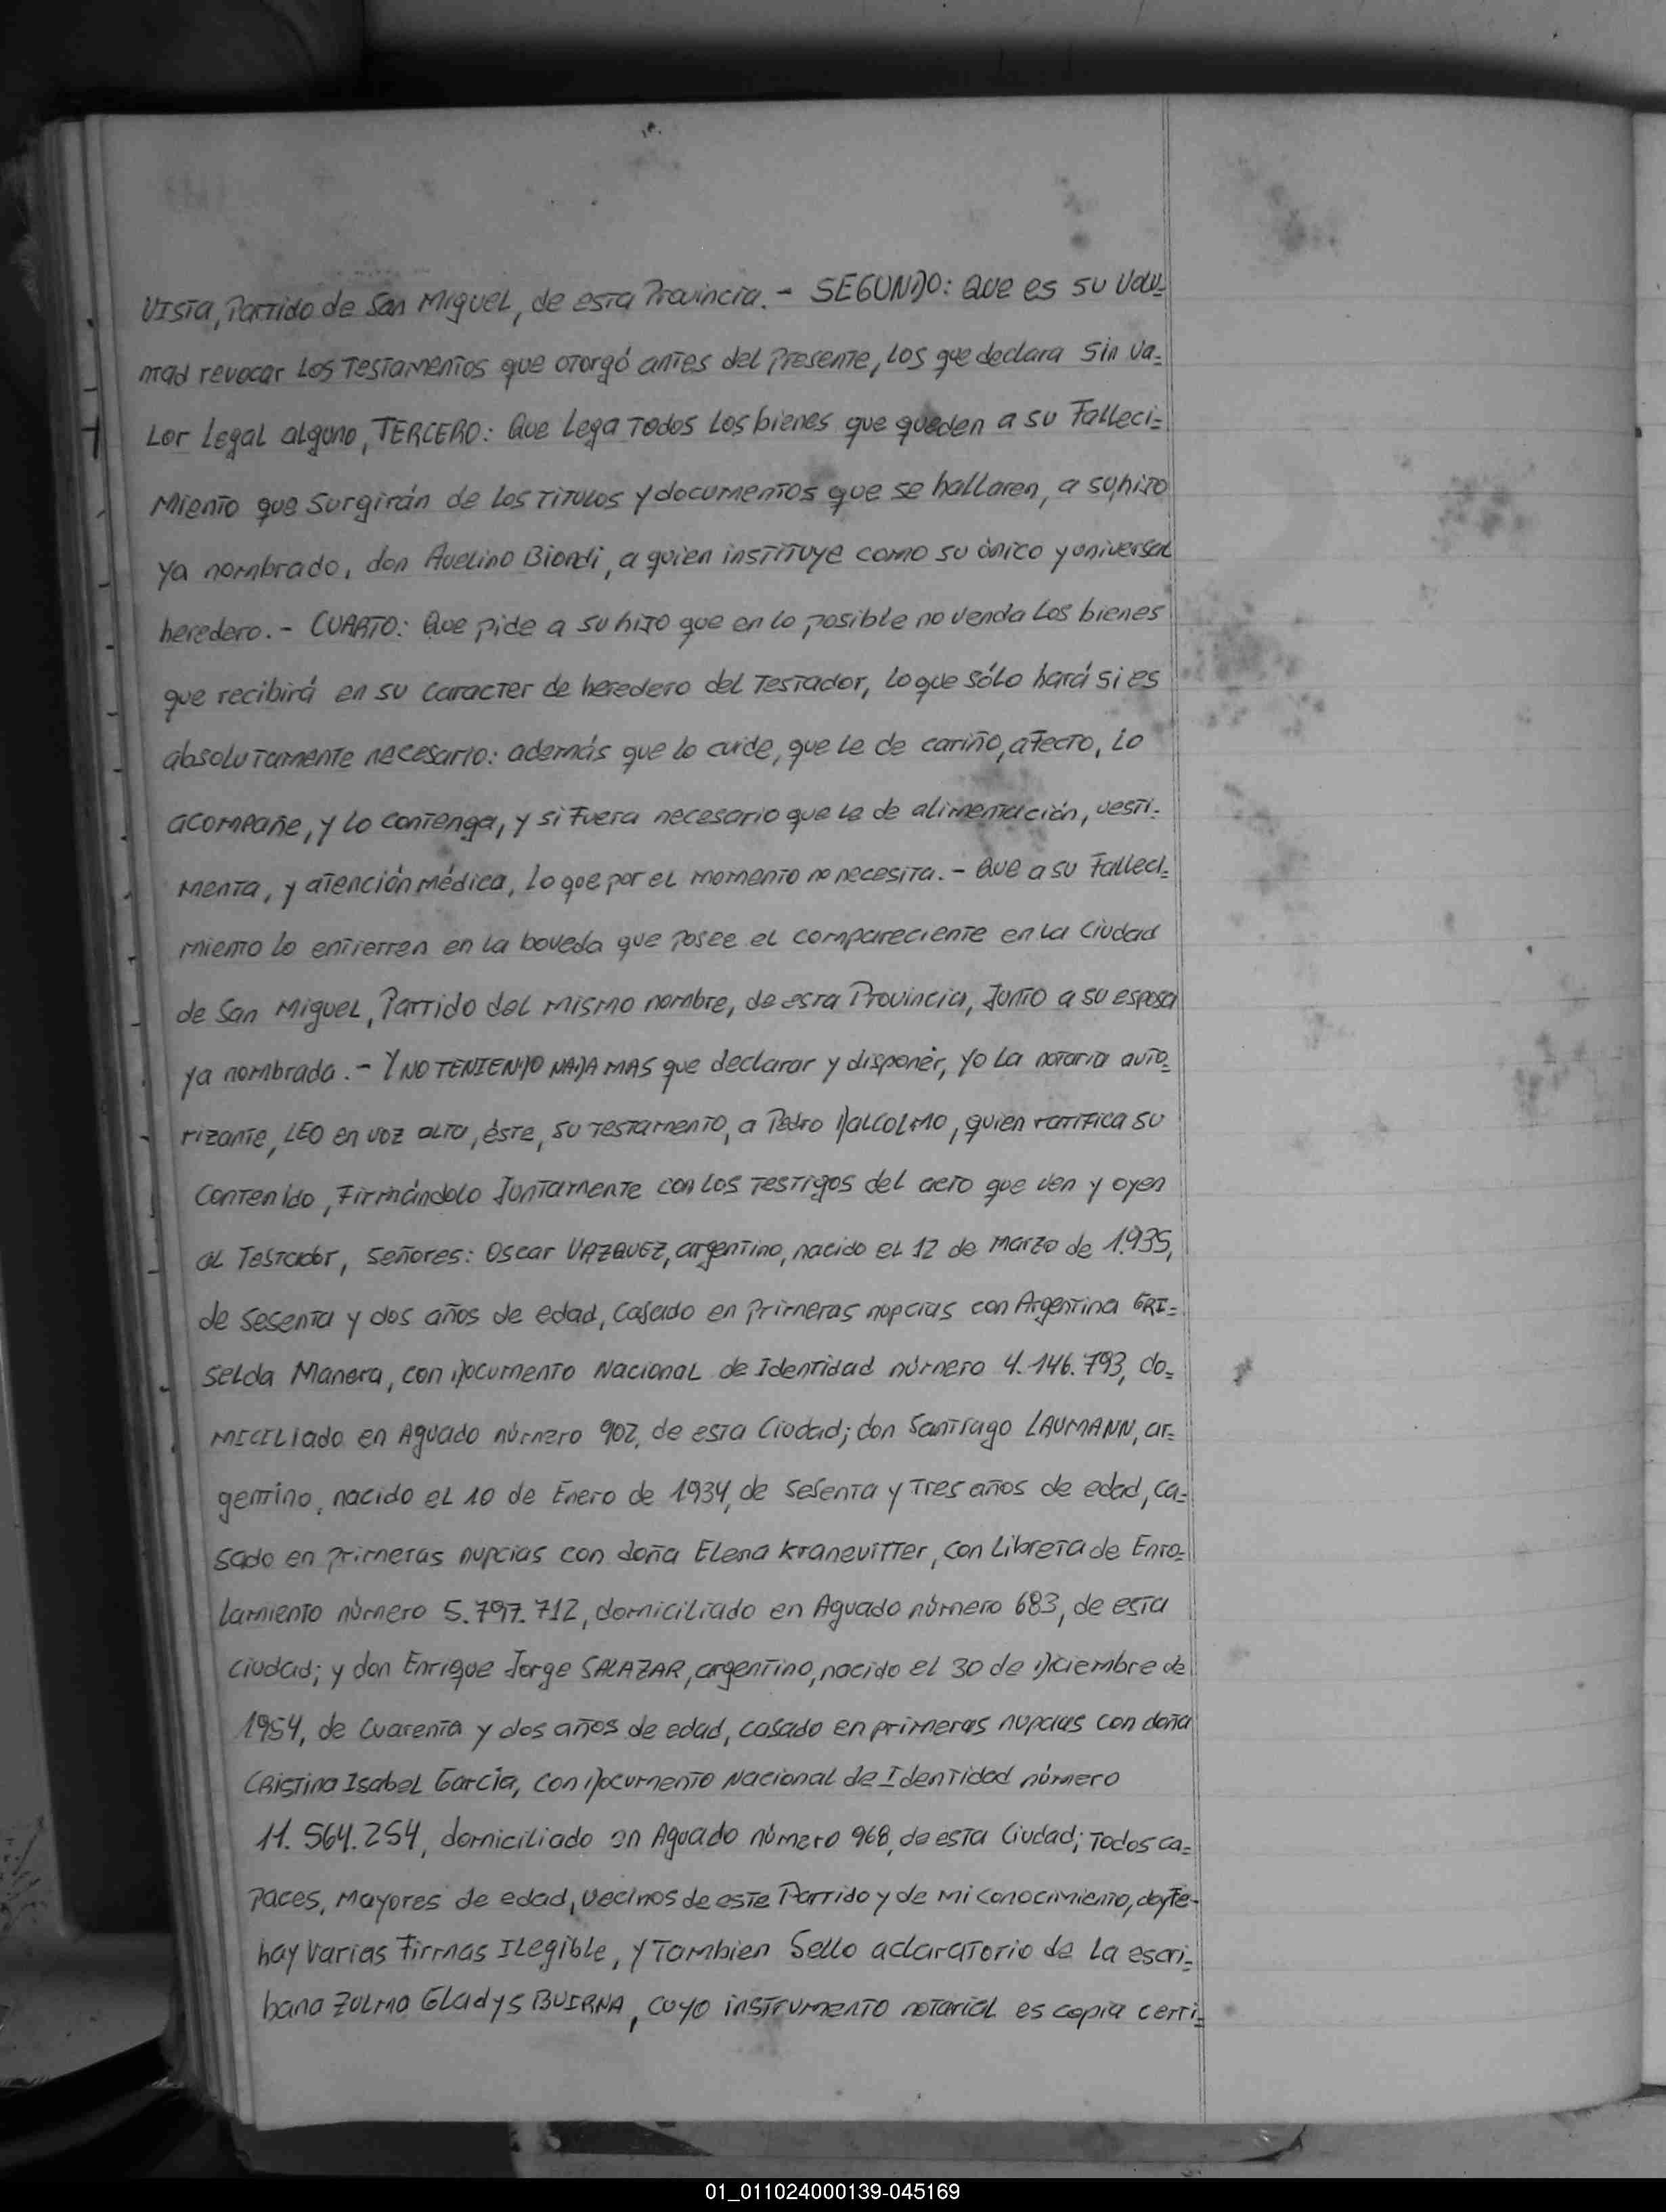 Vista, Partido de San Miguel, de esta Provincia. - SEGUNDO: Que es su Volu=
ntad revocar los Testamentos que otorgó antes del presente, los que declara sin va=
lor legal alguno, TERCERO: Que lega todos los bienes que queden a su Falleci=
miento que surgirán de los titulos y documentos que se hallaren, a su hijo
ya nombrado, don Avelino Biondi, a quien instituye como su único y universal
heredero. - CUARTO: Que pide a su hijo que en lo posible no venda los bienes
que recibirá en su caracter de heredero del Testador, lo que sólo hará si es
absolutamente necesario: además que lo cuide, que le de cariño, afecto, lo
acompañe, y lo contenga, y si fuera necesario que le de alimentación, vesti-
menta, y atención médica, lo que por el momento no necesita. - Que a su Falleci=
miento lo entierren en la boveda que posee el compareciente en la Ciudad
de San Miguel, Partido del mismo nombre, de esta Provincia, Junto a su esposa
ya nombrada. - Y NO TENIENDO NADA MAS que declarar y disponer, yo la notaria auto=
rizante, LEO en voz alta, éste, su testamento, a Pedro DALCOLMO, quien ratifica su
contenido, Firmándolo Juntamente con los testigos del acto que ven y oyen
al Testador, señores: Oscar VAZQUEZ, argentino, nacido el 12 de Marzo de 1.935,
de sesenta y dos años de edad, casado en primeras nupcias con Argentina GRI=
selda Manera, con Documento Nacional de Identidad número 4.146.793, do=
miciliado en Aguado número 902, de esta Ciudad; don Santiago LAUMANN, ar=
gentino, nacido el 10 de Enero de 1934, de sesenta y tres años de edad, ca=
sado en primeras nupcias con doña Elena Kranevitter, con Libreta de Enro=
lamiento número 5.797.712, domiciliado en Aguado número 683, de esta
ciudad; y don Enrique Jorge SALAZAR, argentino, nacido el 30 de Diciembre de
1954, de cuarenta y dos años de edad, casado en primeras nupcias con doña
Cristina Isabel García, con Documento Nacional de Identidad número
11.564.254, domiciliado en Aguado número 968, de esta Ciudad; Todos ca=
paces, mayores de edad, vecinos de este Partido y de mi conocimiento, doy fe-
hay varias Firmas Ilegible, y Tambien Sello aclaratorio de la escri=
bana Zulma Gladys BUIRNA, cuyo instrumento notarial es copia certi=
01_011024000139-045169